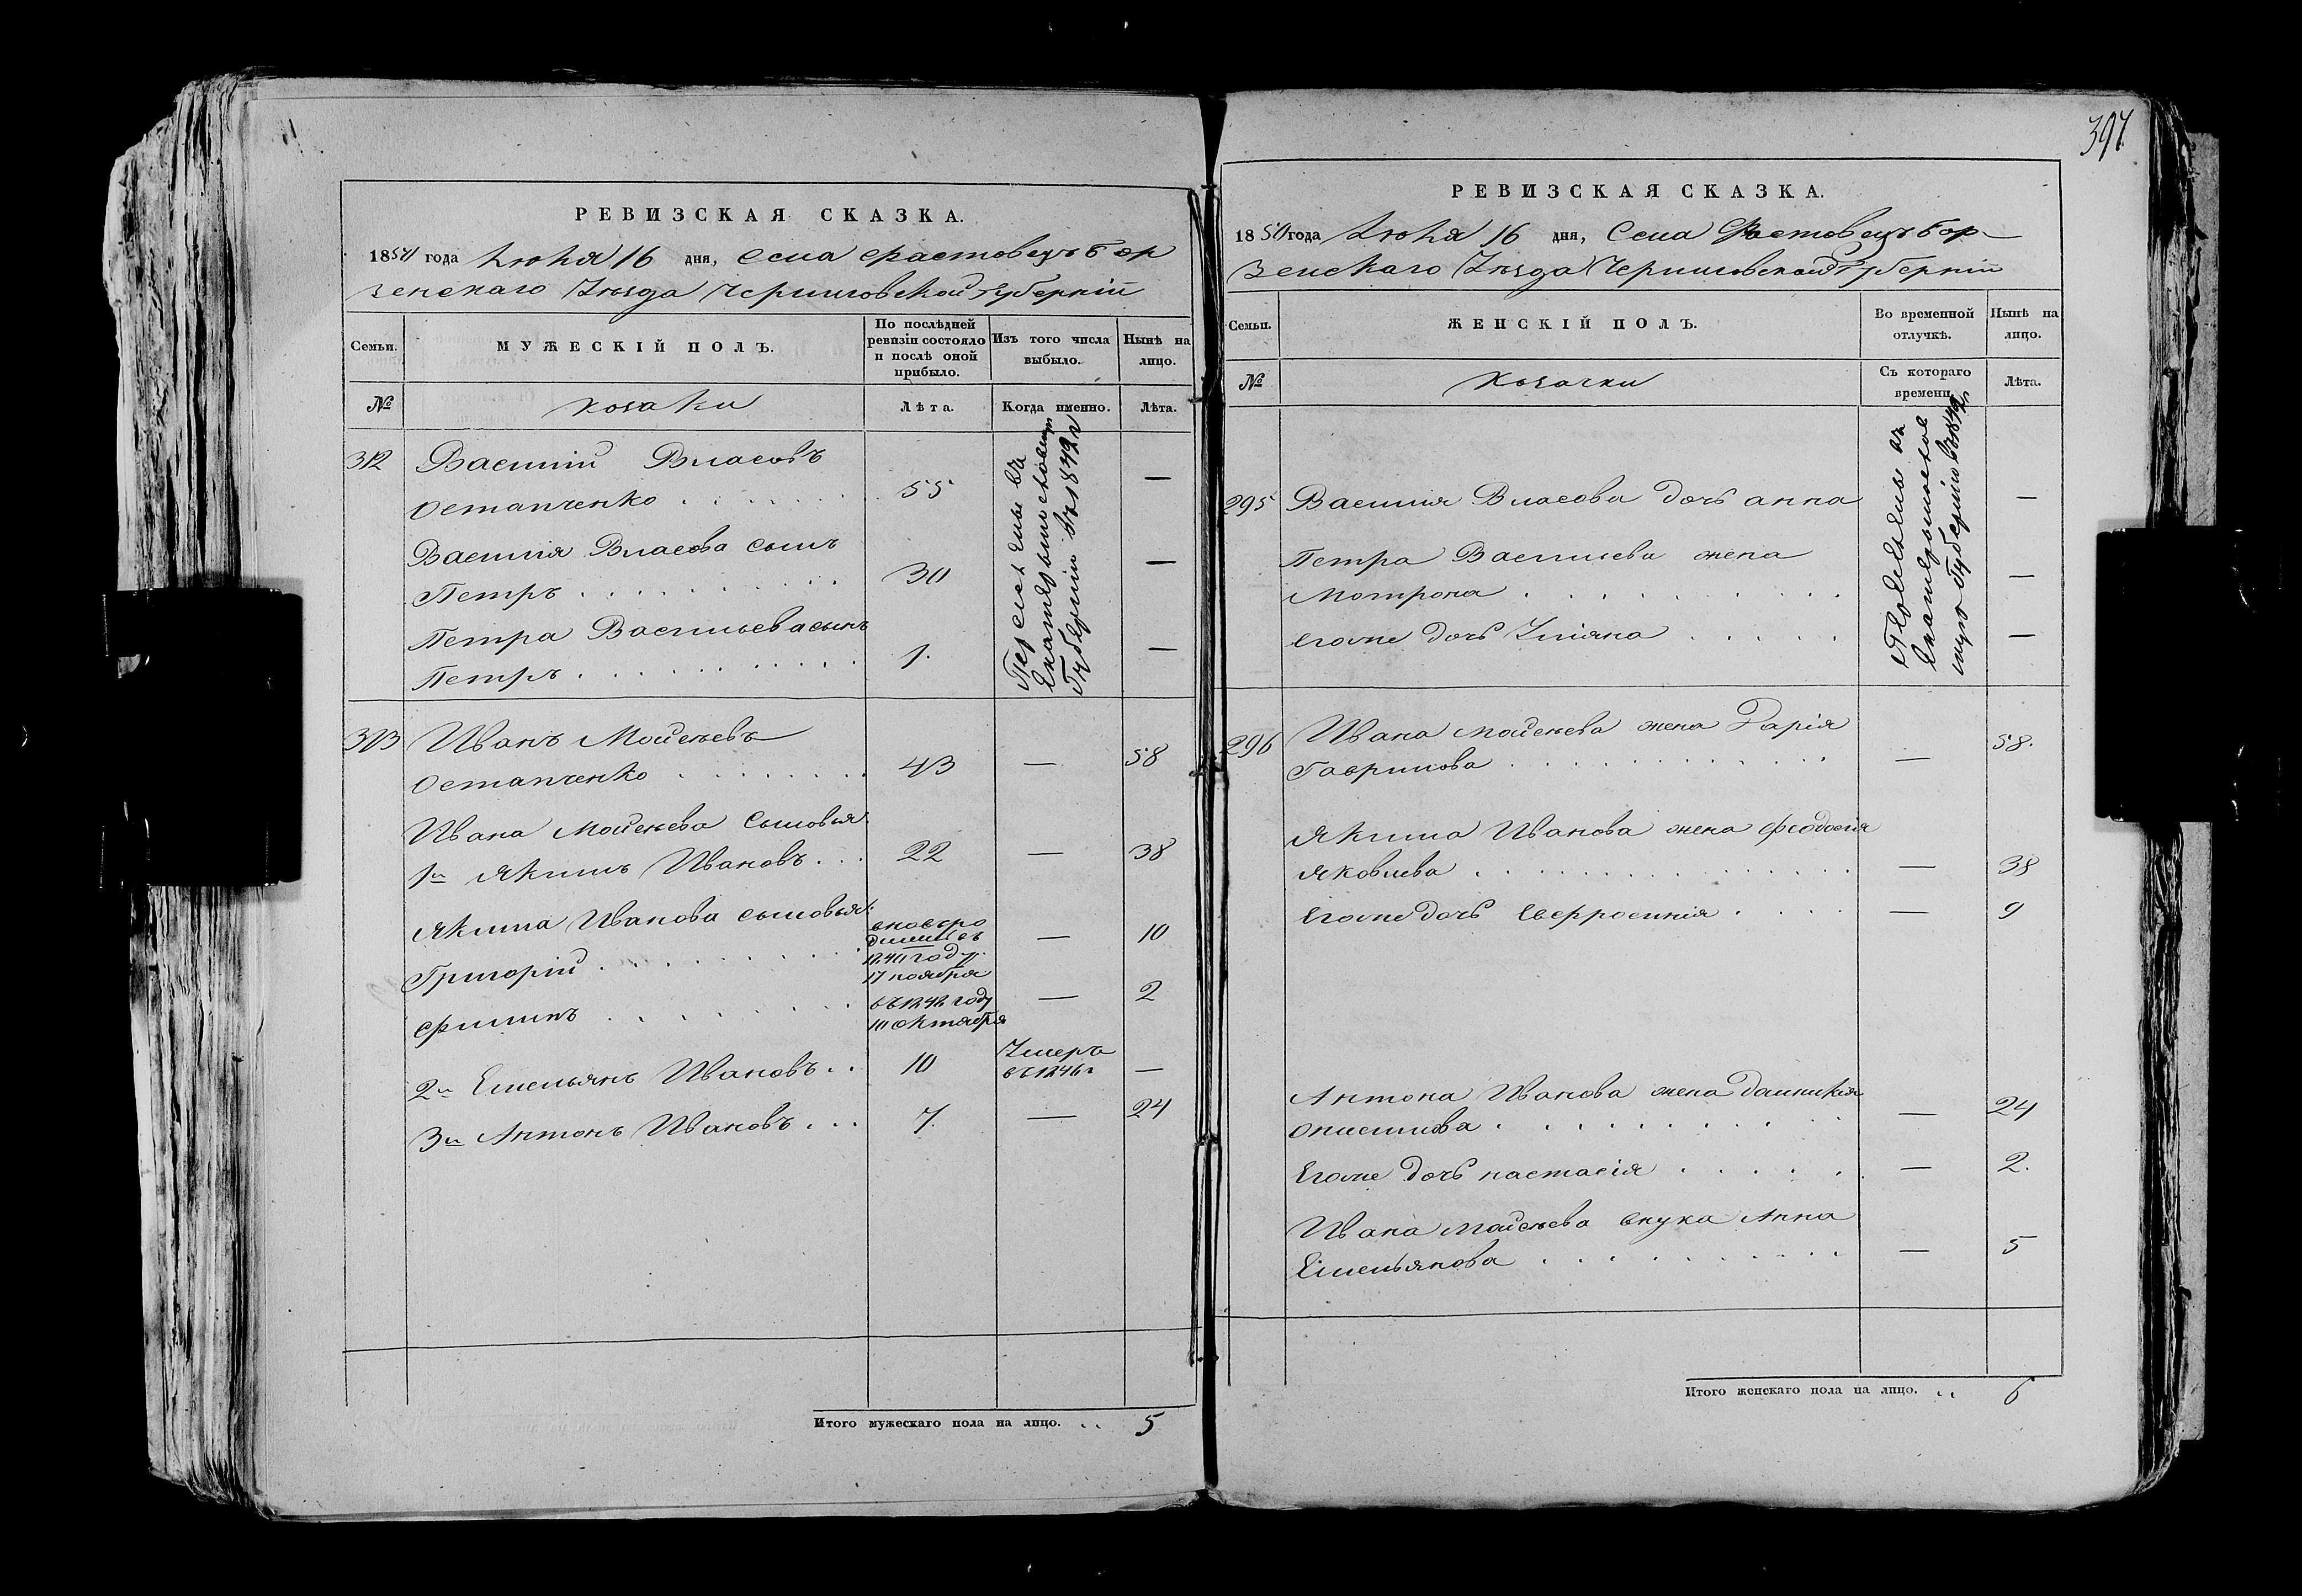 РЕВИЗСКАЯ СКАЗКА.
1850 года Іюня 16 дня, Села Фастовецъ Бор
зенскаго Уезда Черниговской Губерніи
Семьи.
МУЖЕСКІЙ ПОЛЪ.
По послѣдней
ревизіи состояло
и послѣ оной
прибыло.
Изъ того числа
выбыло.
Нынѣ на
лицо.
№
козаки
Лѣта.
Когда именно.
Лѣта.
312 Василий Власовъ
Остапченко 55 —
Василія Власова сынъ
Петръ 30 —
Петра Васильева сынъ
Петръ 1. —
Переселены въ
Екатеринославскую
Губернію въ 1842 г
313 Иванъ Мойсеевъ
Остапченко 43 — 58
Ивана Мойсеева Сыновья
1й Якимъ Ивановъ 22 — 38
Якима Иванова сыновья:
Григорій
вновьро
дились въ
1840 году
17 ноября
— 10
Филипъ
въ 1848 году
10 октября
— 2
2й Емельянъ Ивановъ 10
Умеръ
въ 1846 г
—
3й Антонъ Ивановъ 7. — 24
Итого мужескаго пола на лицо. 5
397.
РЕВИЗСКАЯ СКАЗКА.
1850 года Іюня 16 дня, Села Фастовецъ Бор-
зенскаго Уезда Черниговской Губерніи
Семьи.
ЖЕНСКІЙ ПОЛЪ.
Во временной
отлучкѣ.
Нынѣ на
лицо.
№
козачки
Съ котораго
времени.
Лѣта.
295 Василия Власова дочь анна —
Петра Васильева жена
Мотрона —
Егоже дочь Улияна —
Переселены въ
Екатеринославскую
Губернію въ 1842 г
296 Ивана Мойсеева жена Дарія
Гаврилова — 58.
Якима Иванова жена Феодосія
Яковлева — 38
Егоже дочь Евфросинія — 9
Антона Иванова жена Домникія
Онисимова — 24
Егоже дочь настасія — 2.
Ивана Мойсеева внука Анна
Емельянова — 5
Итого женскаго пола на лицо. 6